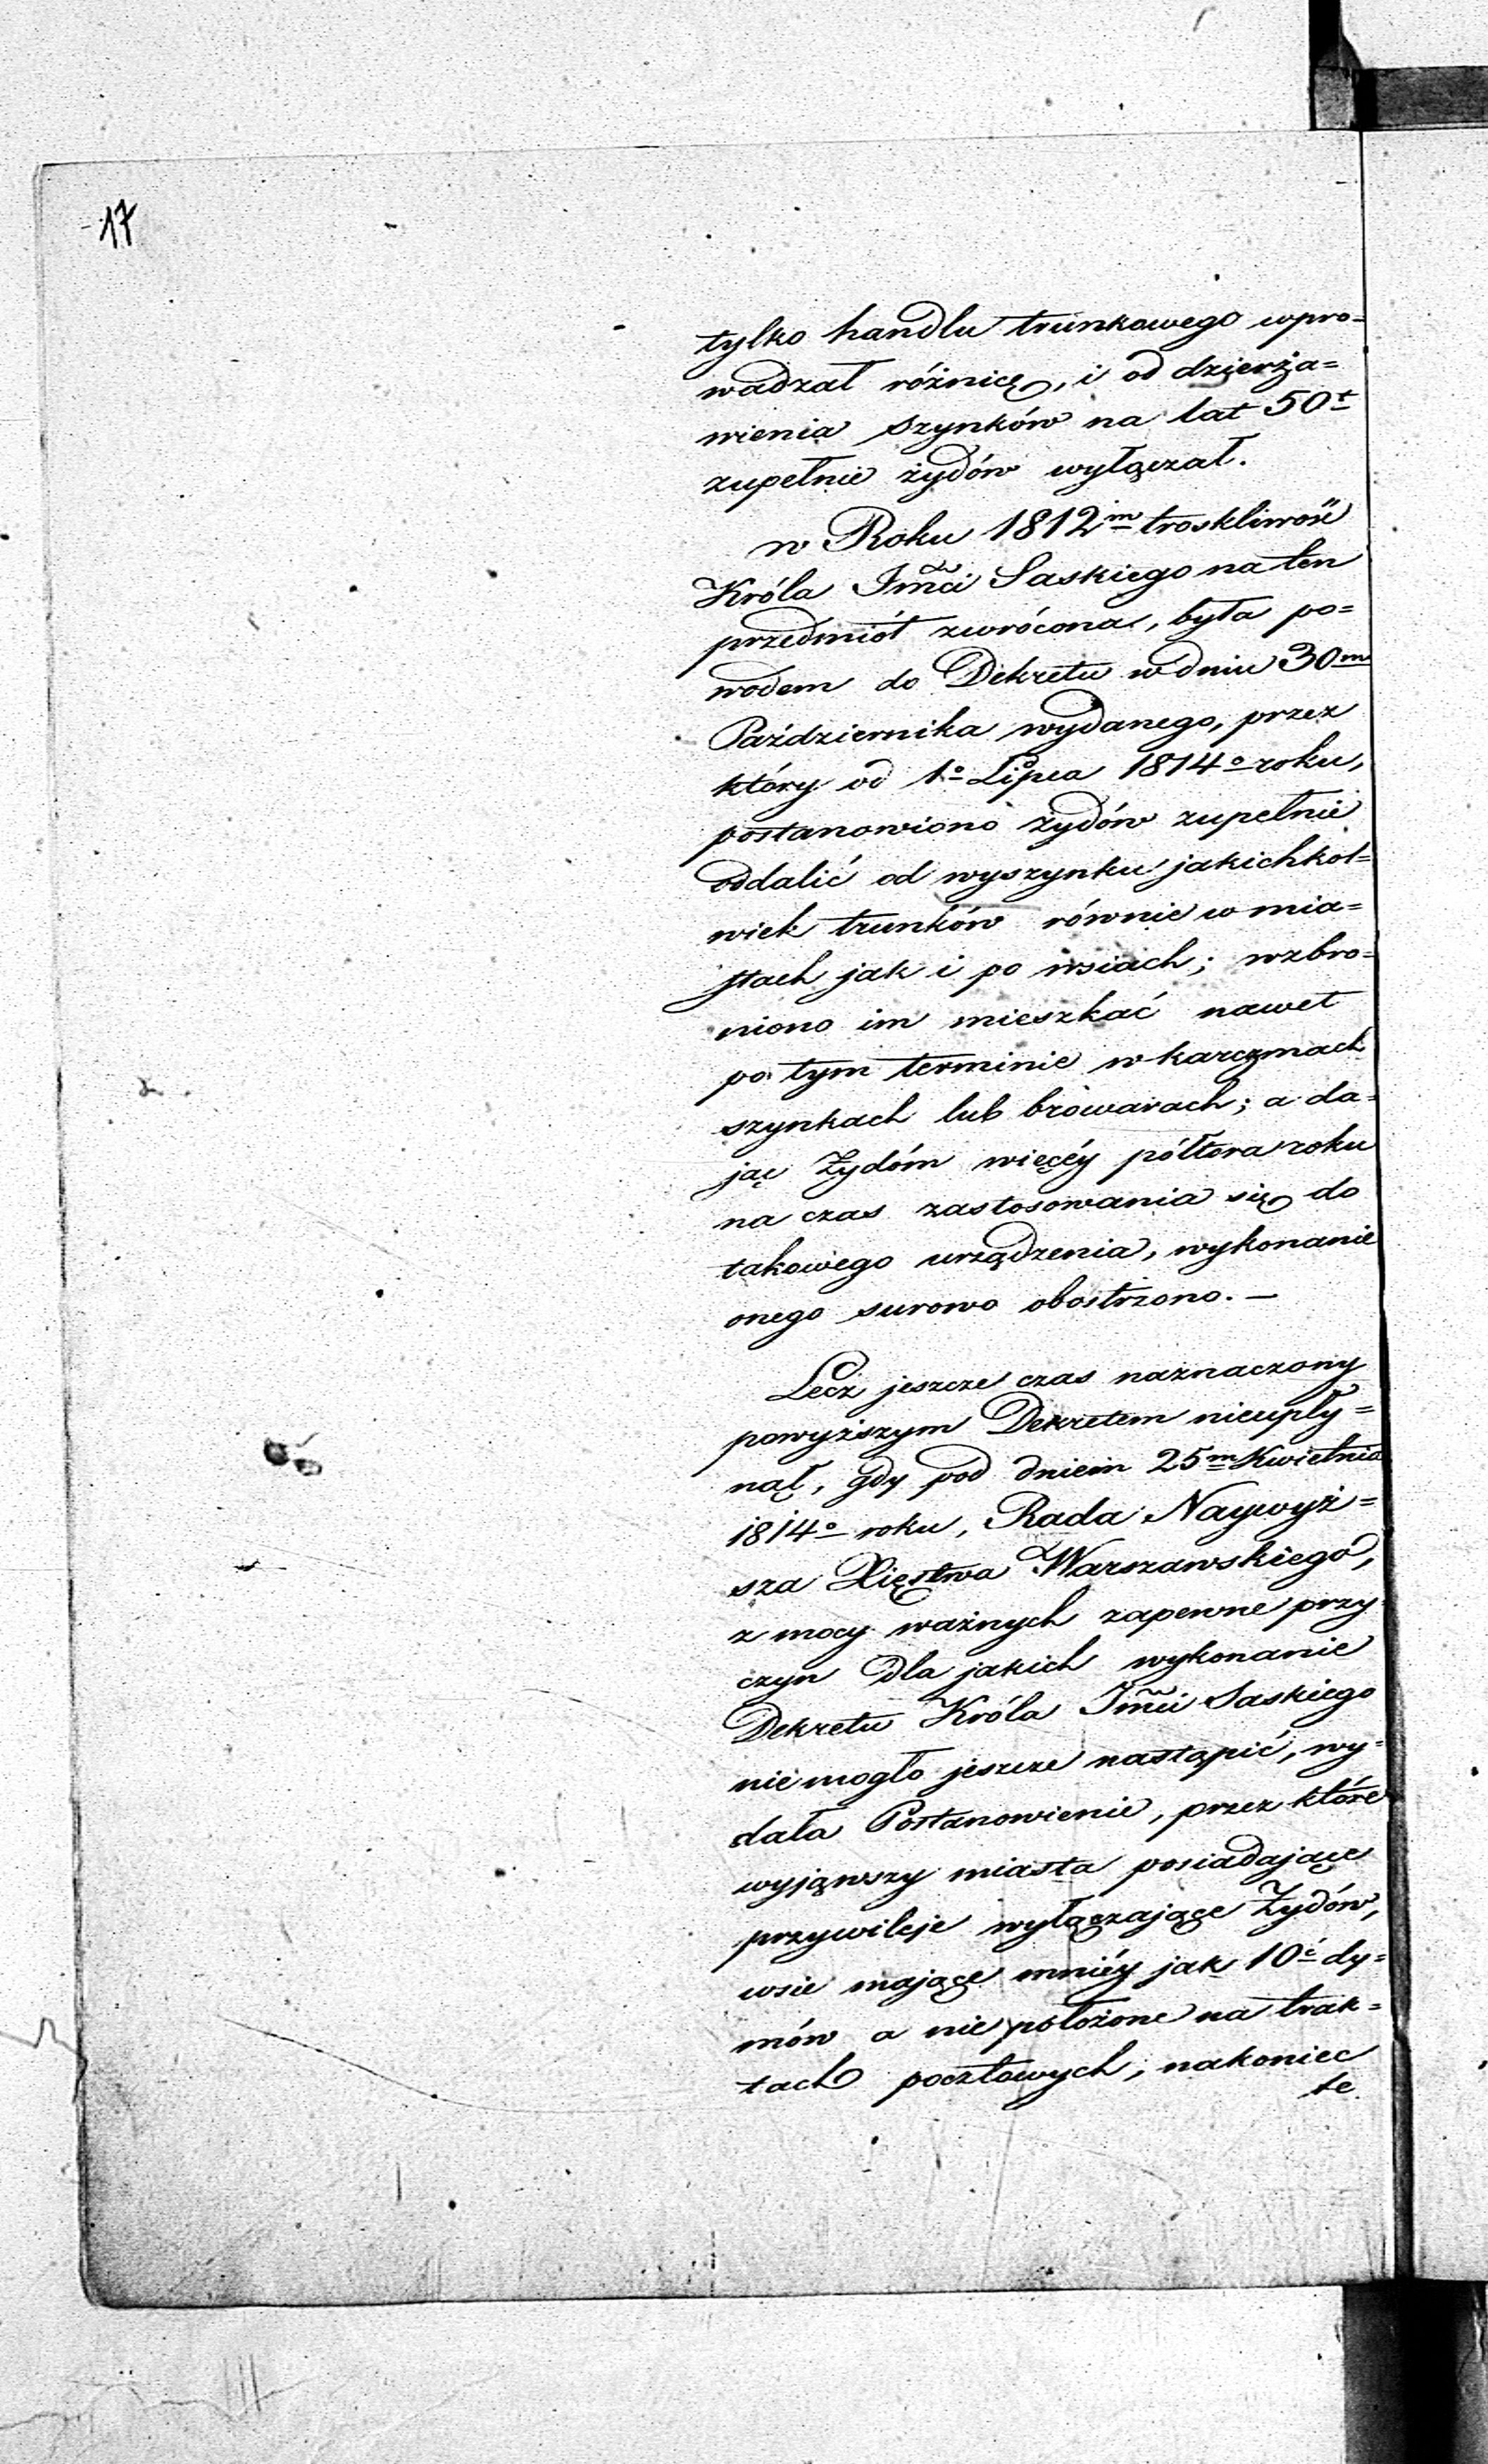 17
tylko handlu trunkowego wpro=
wadzał różnicę, i od dzierża=
wienia szynków na lat 50t
zupełnie żydów wyłączał.
w Roku 1812m troskliwość
Króla Jmci Saskiego na ten
przedmiot zwrócona, była po=
wodem do Dekretu w dniu 30m
Października wydanego, przez
który od 1o Lipca 1814o roku,
postanowiono żydów zupełnie
oddalić od wyszynku jakichkol=
wiek trunków równie w mia=
stach jak i po wsiach; wzbro=
niono im mieszkać nawet
po tym terminie w karczmach
szynkach lub browarach; a da=
jąc Żydóm więcéy półtora roku
na czas zastosowania się do
takowego urządzenia, wykonanie
onego surowo obostrzono. —
Lecz jeszcze czas naznaczony
powyższym Dekretem nieupły=
nął, gdy pod dniem 25m Kwietnia
1814o roku, Rada Naywyż=
sza Xięstwa Warszawskiego,
z mocy ważnych zapewne przy
czyn dla jakich wykonanie
Dekretu Króla Jmci Saskiego
niemogło jeszcze nastąpić, wy=
dała Postanowienie, przez które
wyjąwszy miasta posiadające
przywileje wyłączające Żydów,
wsie mające mniéy jak 10ć dy=
mów a nie położone na trak=
tach pocztowych, nakoniec
te